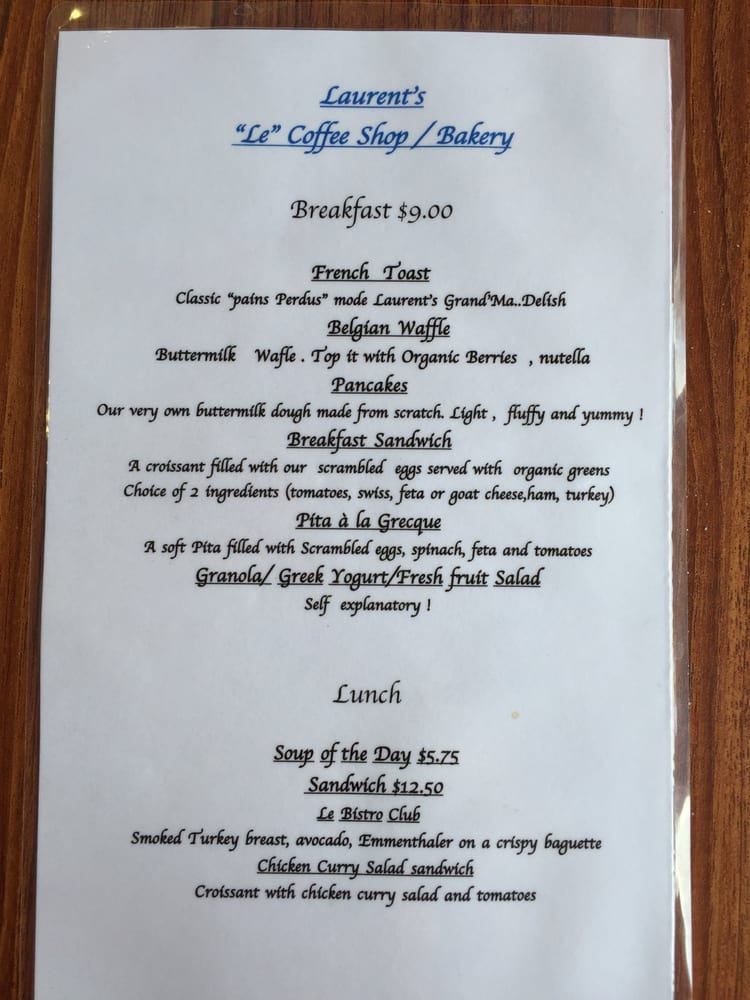 Laurent's
"Le" Coffee Shop / Bakery
Breakfast $9.00
French Toast
Classic "pains Perdus" mode Laurent's Grand'Ma..Delish
Belgian Waffle
Buttermilk Wafle . Top it with Organic Berries , nutella
Pancakes
Our very own buttermilk dough made from scratch. Light , fluffy and yummy !
Breakfast Sandwich
A croissant filled with our scrambled eggs served with organic greens
Choice of 2 ingredients (tomatoes, swiss, feta or goat cheese,ham, turkey)
Pita à la Grecque
A soft Pita filled with Scrambled eggs, spinach, feta and tomatoes
Granola/ Greek Yogurt/Fresh fruit Salad
Self explanatory !
Lunch
Soup of the Day $5.75
Sandwich $12.50
Le Bistro Club
Smoked Turkey breast, avocado, Emmenthaler on a crispy baguette
Chicken Curry Salad sandwich
Croissant with chicken curry salad and tomatoes